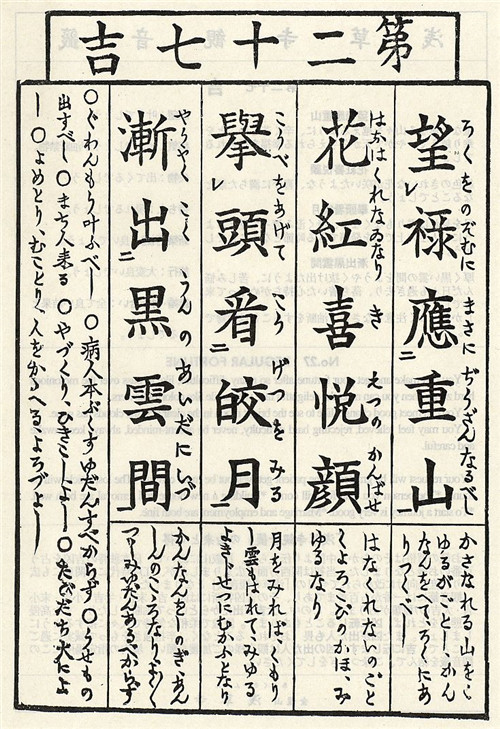 第二十七吉
ろくをのぞむに まさに ぢうざんなるべし
望レ祿應二重山一
かさなれる山をこ
ゆるがごとし、かん
なんをへてろくにあ
りつく也
はなはくれなゐなり き えつの かんばせ
花紅喜悦顔
はなくれないのごと
くよろこびのかほ、み
ゆるなり
こうべをあげて こう げつを みる
擧レ頭看二皎月一
月をみればくもり
し雲もはれてみゆる
よきじせつにむかふとなり
やうやく こく うんの あいだにいづ
漸出二黒雲間一
かんなんをしのぎ、あん
しんのところなり、よく
つゝしみゆだんあるべからず
〇ぐわんもう叶ふべし 〇病人本ぶくすゆだんすべからず 〇うせもの
出すべし 〇まち人来る 〇やづくり、ひきこしよし 〇たびだち大によ
し 〇よめとり、むことり、人をかゝへるよろづよし